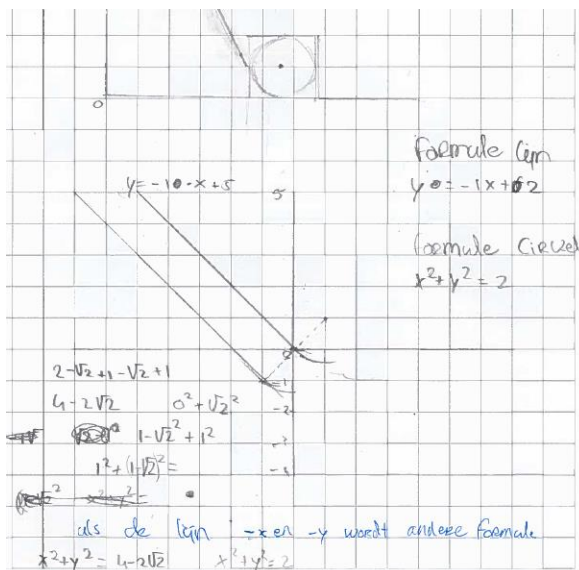 0
Formule lijn
y = -1x + 2
y = -10·x + 5
5
formule cirkel
x² + y² = 2
2-√2+1-√2+1
4-2√2
0² + √2²
-1
-2
1-√2² + 1²
1² + (1-√2)² =
als de lijn -x en -y wordt andere formule
x² + y² = 4-2√2
x² + y² = 2